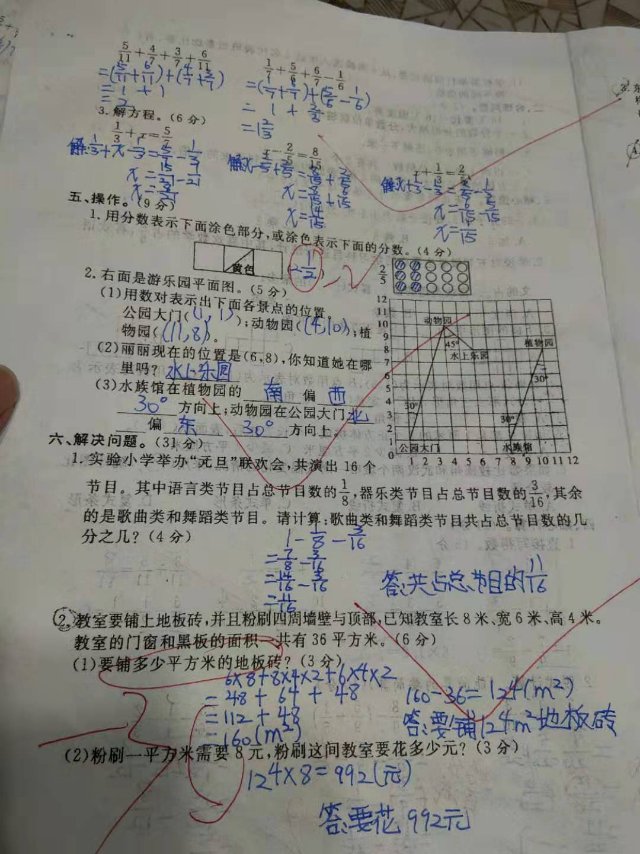 5/11+4/7+3/7+6/11
=(5/11+6/11)+(4/7+3/7)
=1+1
=2
1/7+5/6+6/7-1/6
=(1/7+6/7)+(5/6-1/6)
=1+2/3
=1 2/3
3.解方程。(6分)
1/3+x=5/7
x-2/5=8/15
x+1/3=2/5
x=14/15
x=1/15
五、操作。(9分)
1.用分数表示下面涂色部分,或涂色表示下面的分数。(4分)
黄色
(1/2)
2/5
2.右面是游乐园平面图。(5分)
(1)用数对表示出下面各景点的位置。
公园大门(1,1);动物园(4,10);植
物园(11,8)。
(2)丽丽现在的位置是(6,8),你知道她在哪
里吗?水上乐园
(3)水族馆在植物园的 南 偏 西
30° 方向上;动物园在公园大门 北
偏 东 30° 方向上。
12
11
10
9
8
7
6
5
4
3
2
1
0
动物园
45°
水上乐园
植物园
30°
30°
30°
公园大门
水族馆
1 2 3 4 5 6 7 8 9 10 11 12
六、解决问题。(31分)
1.实验小学举办“元旦”联欢会,共演出16个
节目。其中语言类节目占总节目数的1/8,器乐类节目占总节目数的3/16,其余
的是歌曲类和舞蹈类节目。请计算:歌曲类和舞蹈类节目共占总节目数的几
分之几?(4分)
1-1/8-3/16
=7/8-3/16
=14/16-3/16
=11/16
答:共占总节目的11/16
2.教室要铺上地板砖,并且粉刷四周墙壁与顶部,已知教室长8米、宽6米、高4米。
教室的门窗和黑板的面积一共有36平方米。(6分)
(1)要铺多少平方米的地板砖?(3分)
6×8+8×4×2+6×4×2
=48+64+48
=112+48
=160(m²)
160-36=124(m²)
答:要铺124m²地板砖
(2)粉刷一平方米需要8元,粉刷这间教室要花多少元?(3分)
124×8=992(元)
答:要花992元